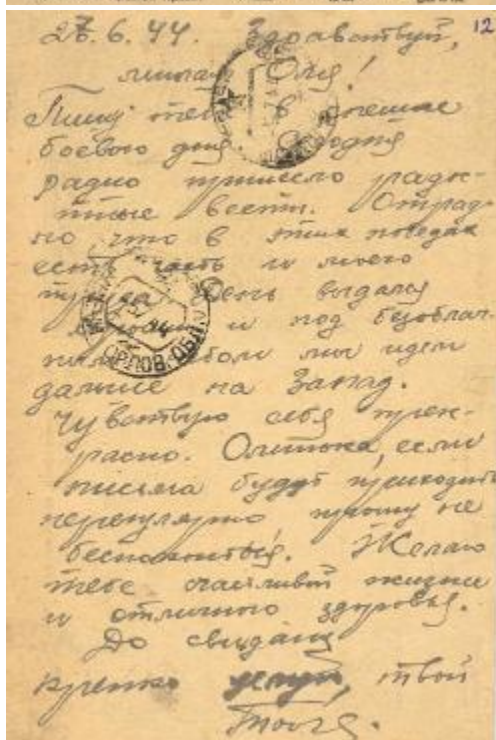 26.6.44. Здравствуй, 12
милая Оля!
Пишу тебе в
боевого дня. Сегодня
радио принесло радост-
ные вести. Отрад-
но что в этих победах
есть часть и моего
труда. День выдался
и под безоблач-
ным небом мы идем
дальше на Запад.
Чувствую себя прек-
расно. Олинька, если
письма будут приходить
нерегулярно, прошу не
беспокоиться. Желаю
тебе счастливой жизни
и отличного здоровья.
До свидания
крепко целую, твой
ОРЛОВ. ОБЛ.
44